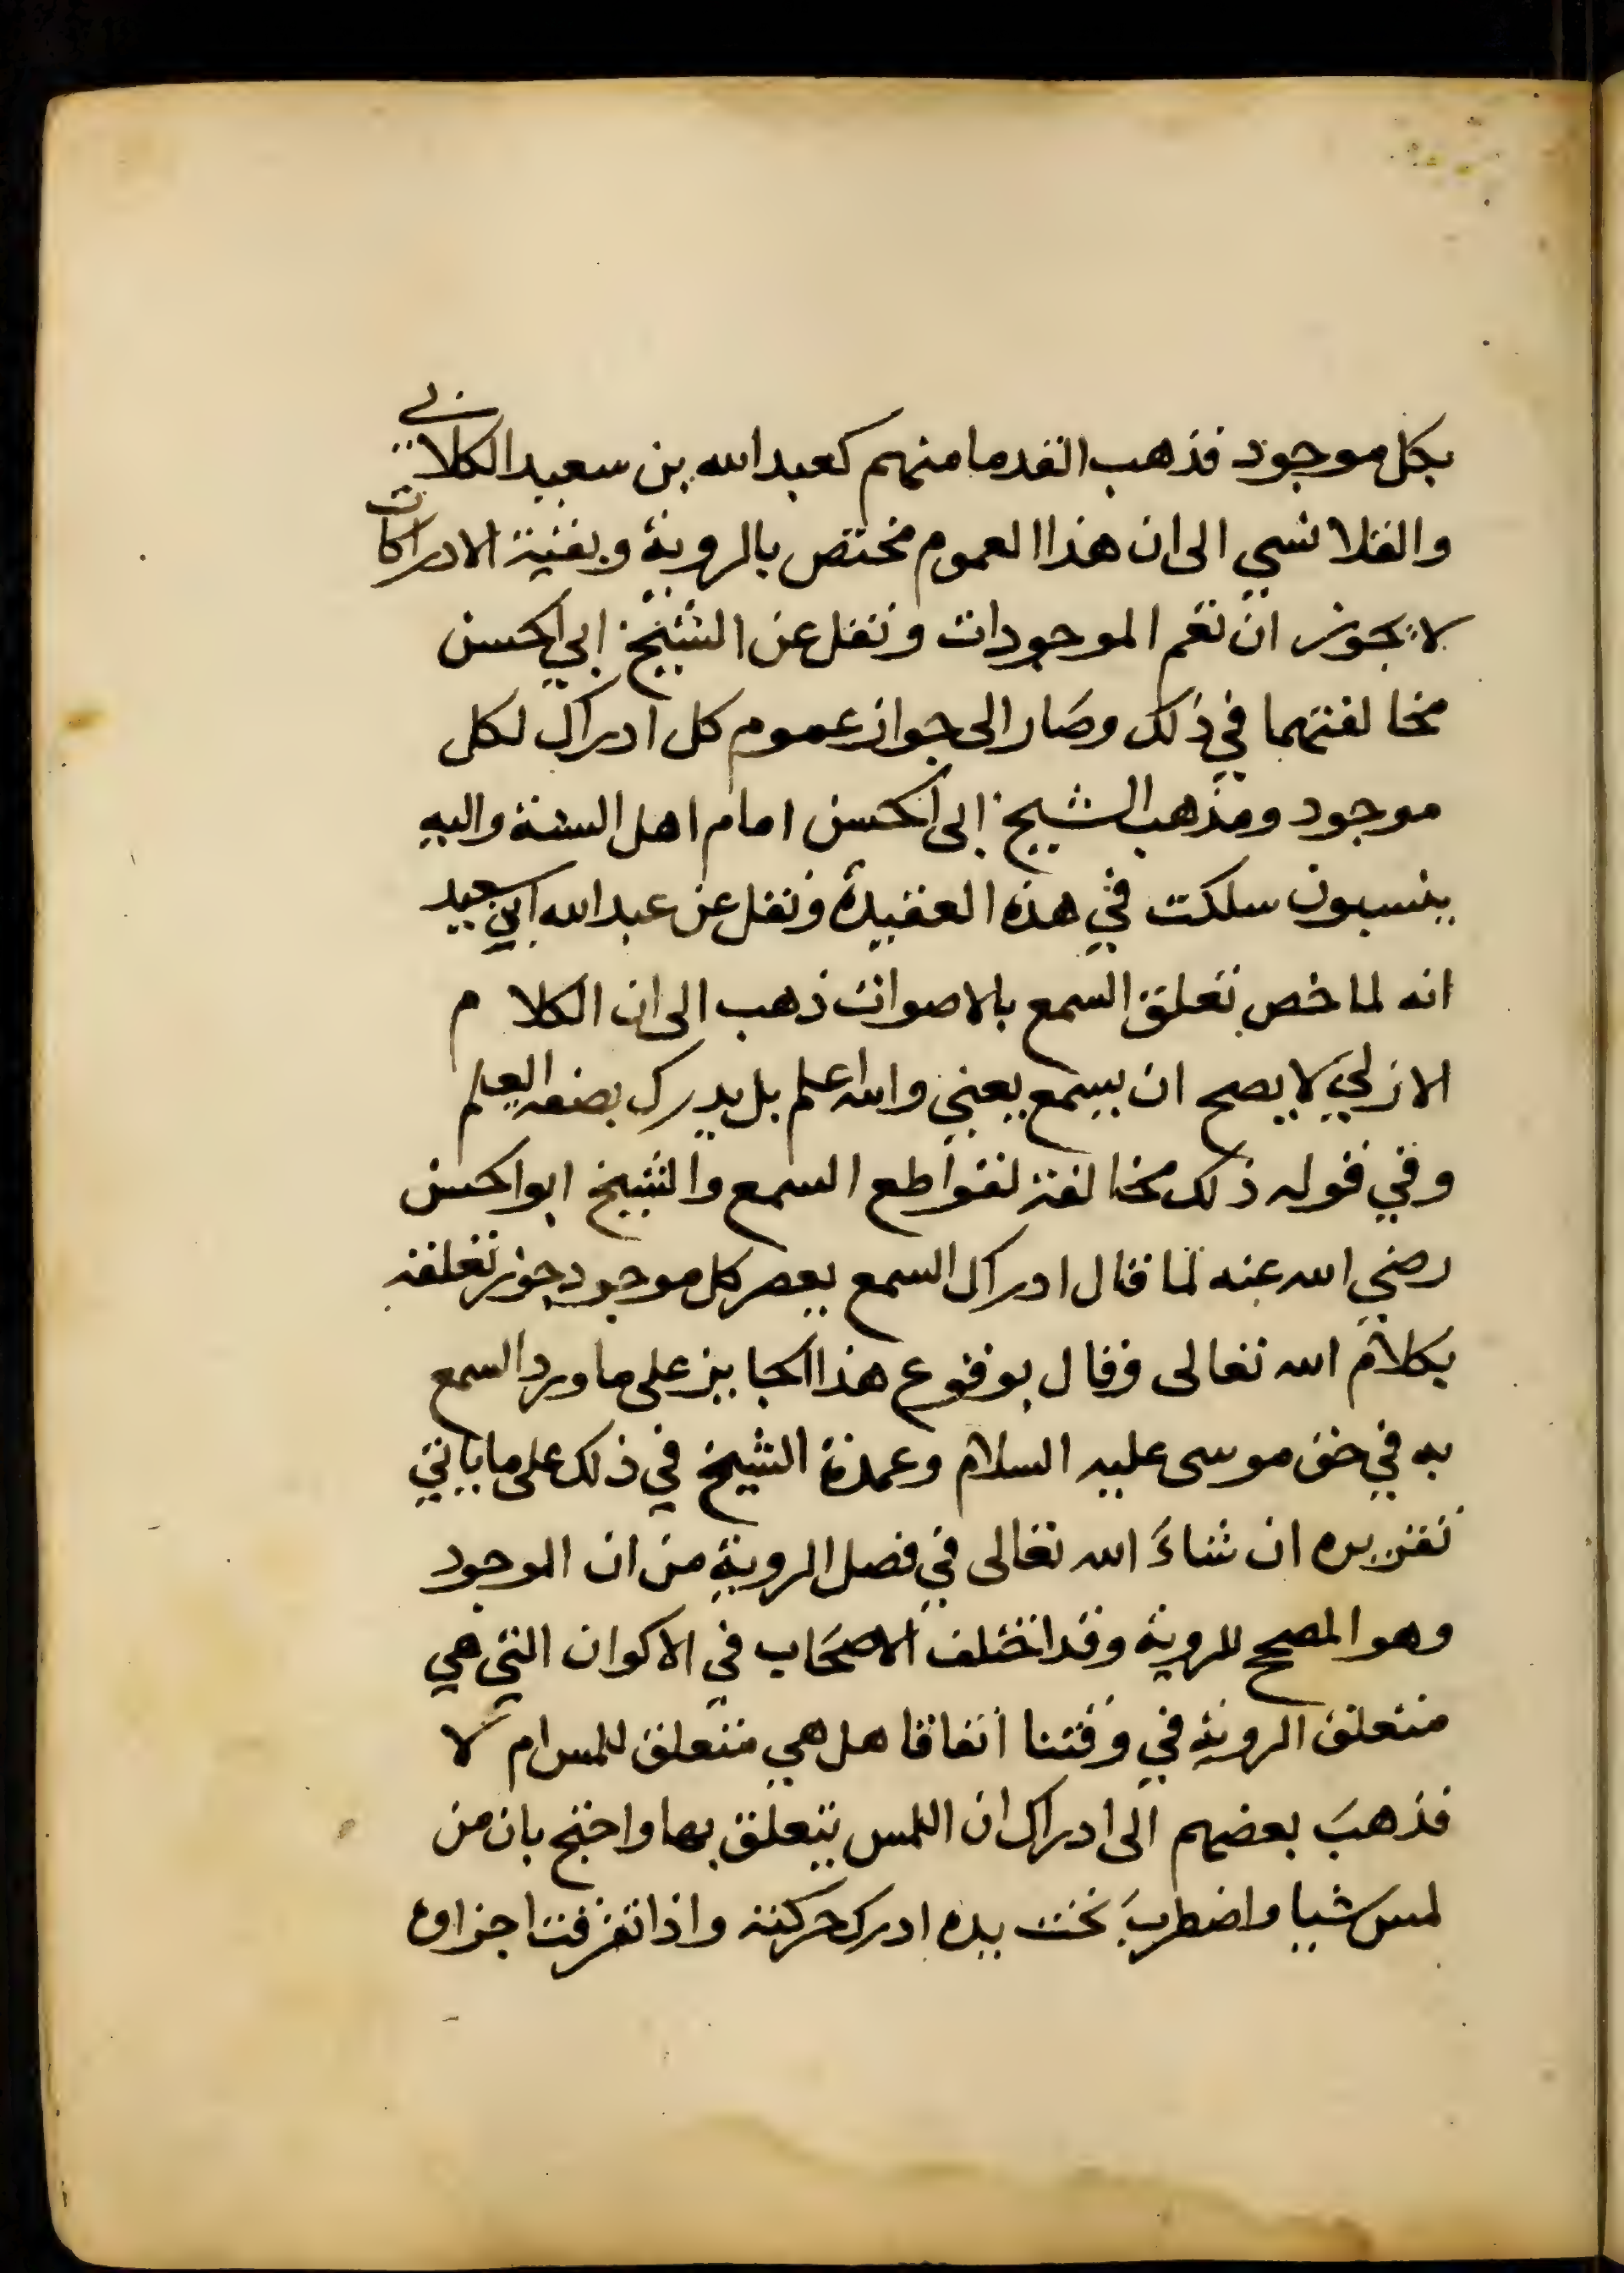 بكل موجود فذهب القدما منهم كعبد الله بن سعيد الكلابي
والقلانسي الى ان هذا العموم مختص بالروية وبقية الادراكات
لا يجوز ان تعم الموجودات ونقل عن الشيخ ابي الحسن
مخالفتهما في ذلك وصار الى جواز عموم كل ادراك لكل
موجود ومذهب الشيخ ابي الحسن امام اهل السنة واليه
ينسبون سلكت في هذه العقيدة ونقل عن عبد الله ابن سعيد
انه لما خص تعلق السمع بالاصوات ذهب الى ان الكلام
الازلي لا يصح ان يسمع يعني والله اعلم بل يدرك بصفة العلم
وفي قوله ذلك مخالفة لقواطع السمع والشيخ ابو الحسن
رضي الله عنه لما قال ادراك السمع يعم كل موجود جوز تعلقه
بكلام الله تعالى وقال بوقوع هذا الجايز على ما ورد السمع
به في حق موسى عليه السلام وعمدة الشيخ في ذلك على ما ياتي
تقريره ان شاءَ الله تعالى في فصل الروية من ان الموجود
وهو المصحح للروية وقد اختلف الاصحَاب في الاكوان التي هي
متعلق الروية في وقتنا اتفاقا هل هي متعلق للمس ام لا
فذهبَ بعضهم الى ادراك ان اللمس يتعلق بها واحتج بان من
لمس شيا واضطربَ تحت يده ادرك حركته واذا تفرقت اجزاوه